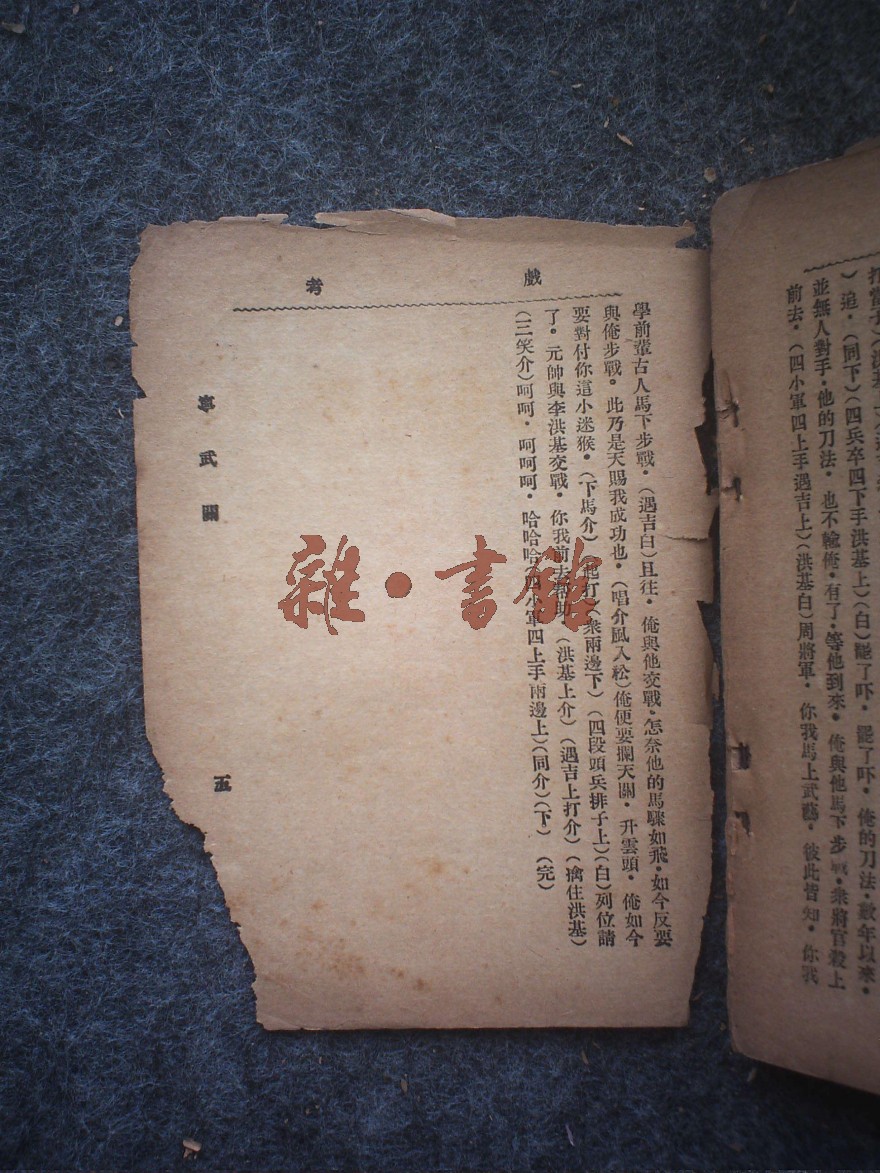 並無人對手・他的刀法・也不輸俺・有了・等他到來・俺與他馬下步戰・衆將官殺上
前去・(四小軍四上手遇吉上)(洪基白)周將軍・你我馬上武藝・彼此皆知・你我
戲考
學前輩古人馬下步戰・(遇吉白)且往・俺與他交戰・怎奈他的馬驟如飛・如今反要
與俺步戰・此乃是天賜我成功也・(唱介風入松)俺便要攔天關・升雲頭・俺如今
要對付你這小迷猴・(下馬介)他打(衆兩邊下)(四段頭兵排子上)(白)列位請
了・元帥與李洪基交戰・你我前去幫助・(洪基上介)(遇吉上打介)(擒住洪基)
(三笑介)呵呵・呵呵呵・哈哈哈(四小軍四上手兩邊上)(同介)(下)(完)
寧武關
五
雜・書館